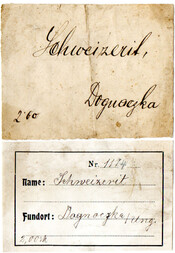 Schweizerit,
Dognaczka
2.60
Nr. 1124
Name: Schweizerit
Fundort: Dognaczka, ung.